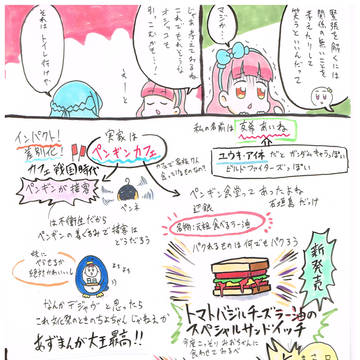 緊張を解くには
関係の無いことを
考えたりして
笑うといいんだって
マジか…
じゃあ考えてみるね
これでもれそうな
オシッコも
引っこむかも…!
よーし
それはトイレ行けや
私の名前は
愛希あいね
ユウキ・アイネだと ガンダムキャラっぽい
ビルドファイターズっぽい
実家は
ペンギンカフェ
インパクト!
差別化!
カフェ戦国時代
ペンギンが接客
ペンネ
は不衛生だから
ペンギンの着ぐるみで接客は
どうだろう
よちよち
なんかデジャヴ…と思ったら
これ文化祭のときのちよちゃんじゃねえか
あずまんが大王最高!!
ペンギン食堂ってあったよね
石垣島だけ
辺銀
名物:元祖食べるラー油
パクれるものは何でもパクろう
新発売
トマトバジルチーズラー油の
スペシャルサンドイッチ
今度こっそりみおちゃんに
食わせてみるべ